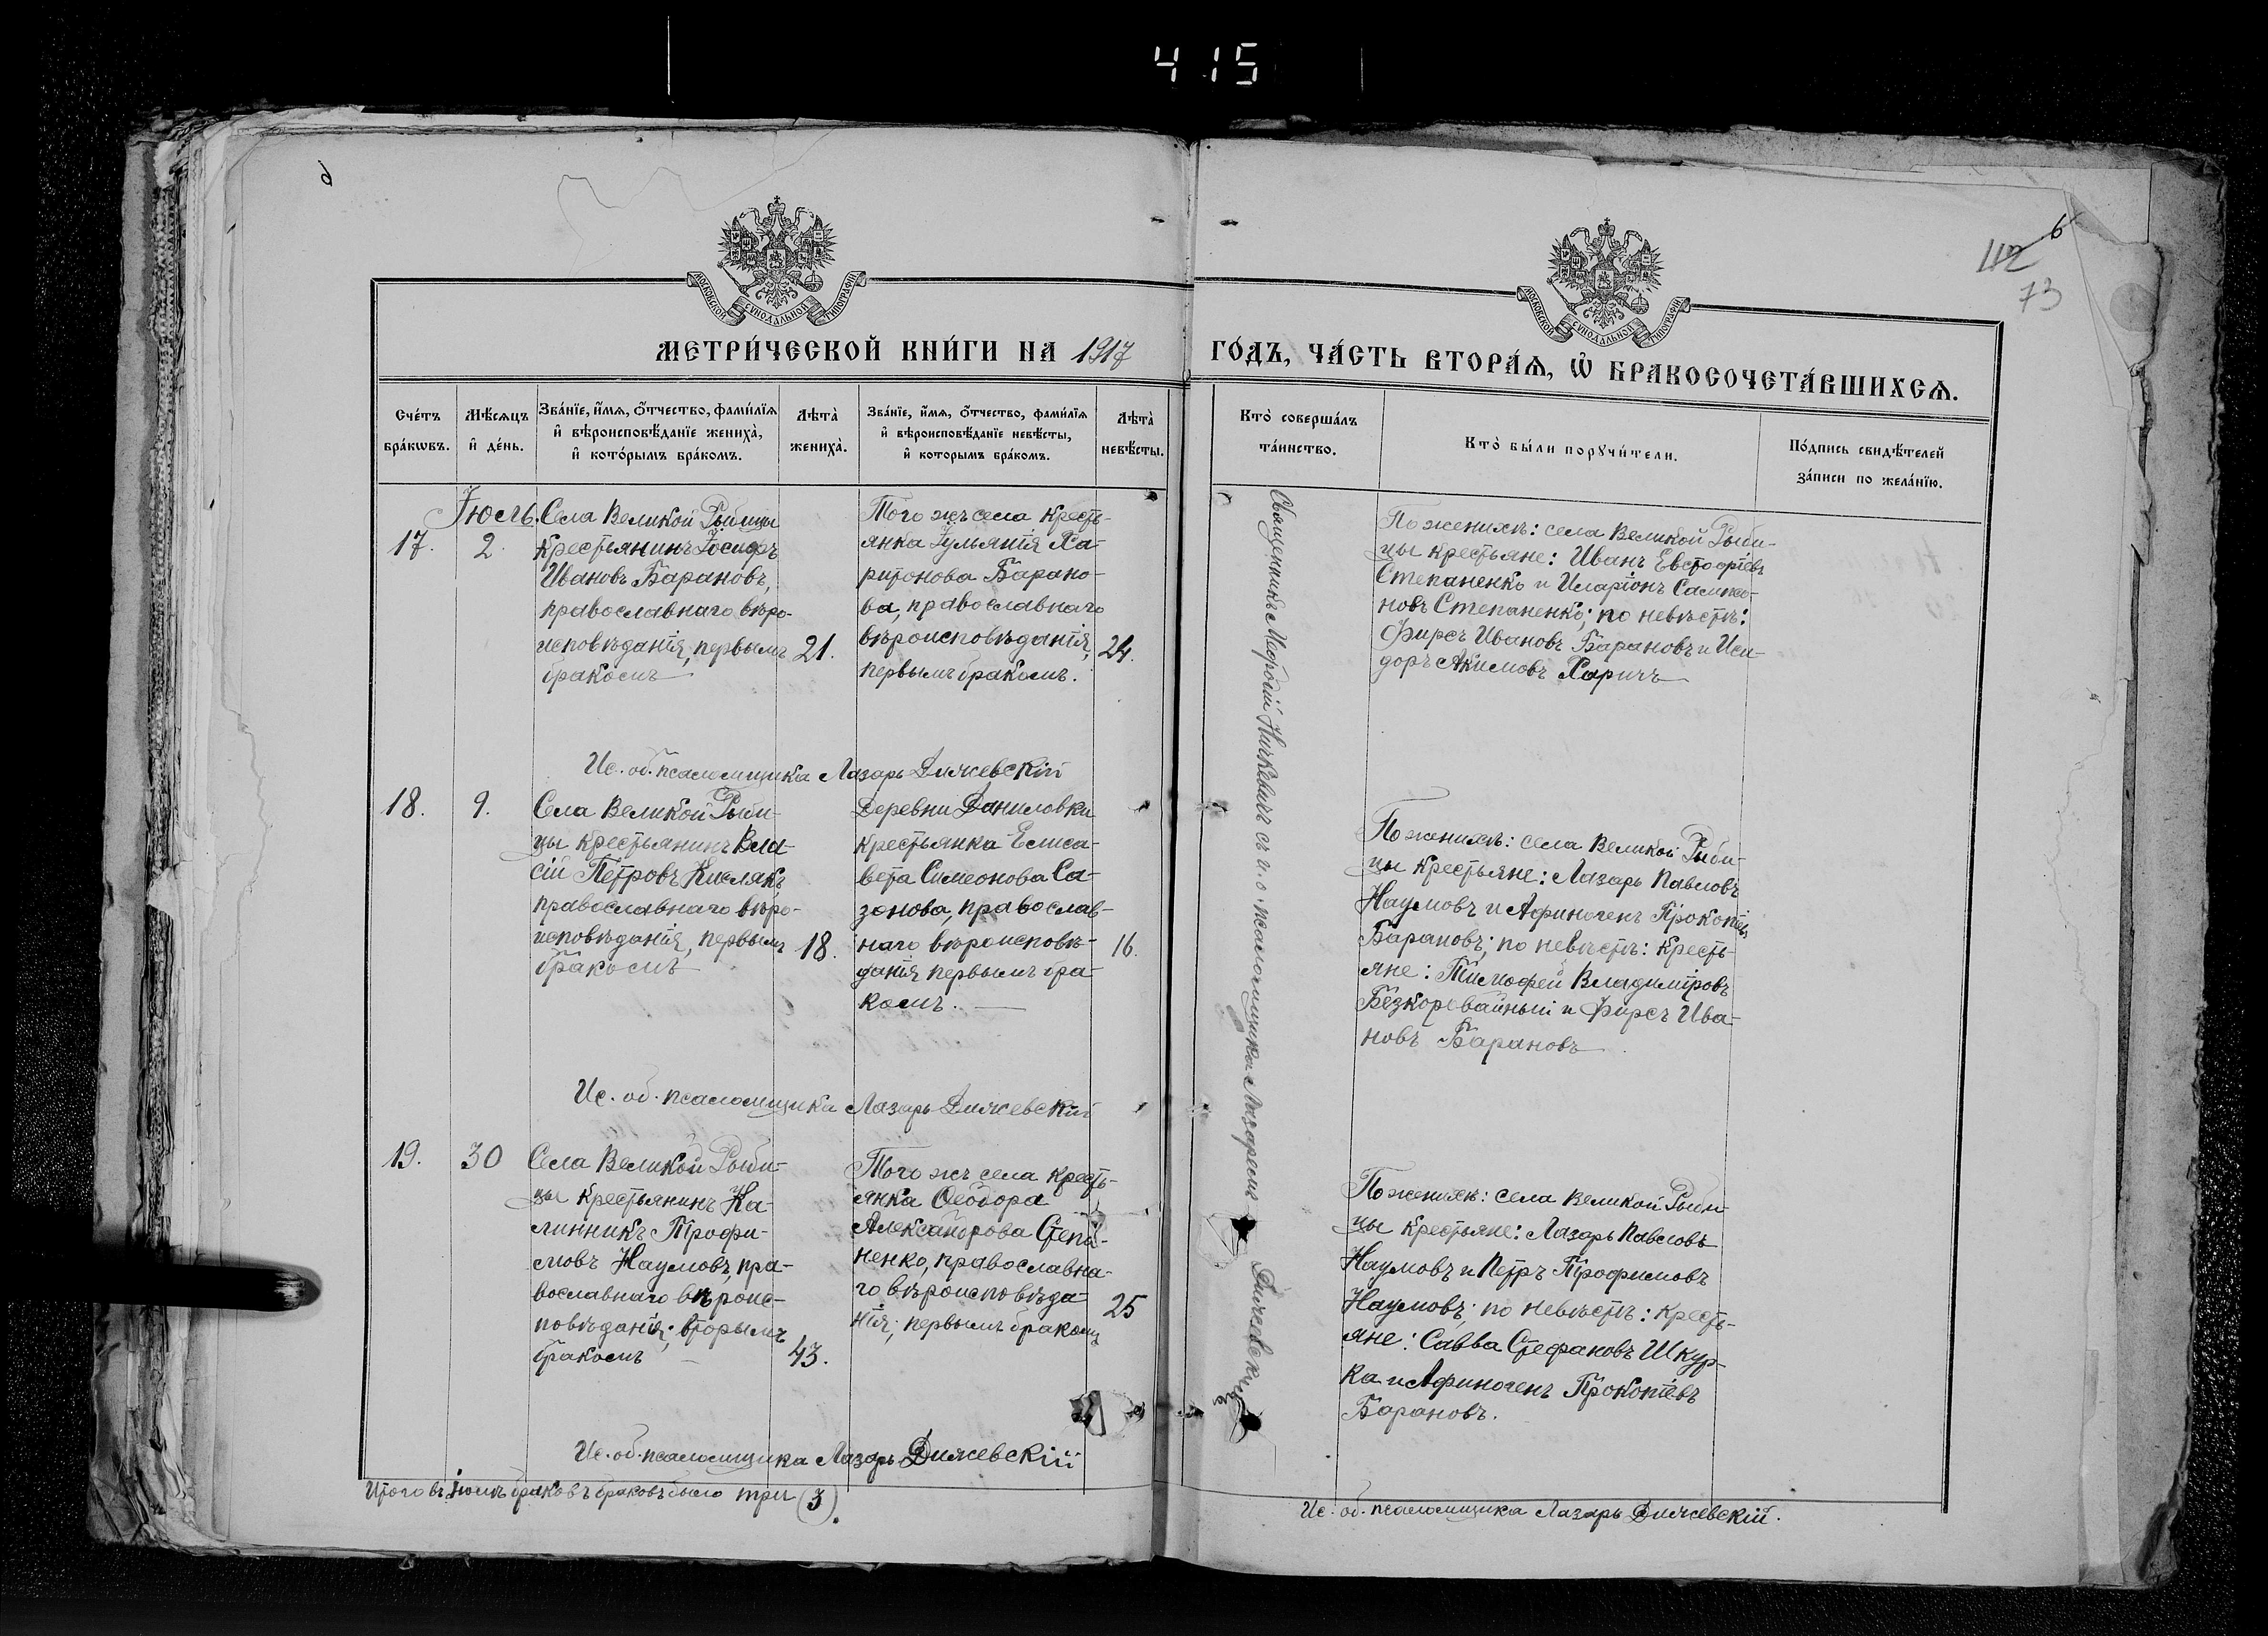 415
112 6
73
МОСКОВСКОЙ СѴНОДАЛЬНОЙ ТИПОГРАФІИ
МОСКОВСКОЙ СѴНОДАЛЬНОЙ ТИПОГРАФІИ
МЕТРИ́ЧЕСКОЙ КНИ́ГИ НА 1917 ГО́ДЪ, ЧА́СТЬ ВТОРА́Ѧ, Ѡ҆ БРАКОСОЧЕТА́ВШИХСѦ.
Сче́тъ бра́кѡвъ.
Мѣ́сѧцъ и҆ де́нь.
Зва́нїе, и҆́мѧ, ѻ҆́тчество, фами́лїѧ
и҆ вѣроисповѣ́данїе жениха̀,
и҆ кото́рымъ бра́комъ.
Лѣта̀ жениха̀.
Зва́нїе, и҆́мѧ, ѻ҆́тчество, фами́лїѧ
и҆ вѣроисповѣ́данїе невѣ́сты,
и҆ которымъ бра́комъ.
Лѣта̀ невѣ́сты.
Кто̀ соверша́лъ та́инство.
Кто̀ бы́ли порꙋчи́тели.
По́дпись свидѣ́телей
за́писи по жела́нїю.
Іюль.
17.
2.
Села Великой Рыбицы
крестьянинъ Іосифъ
Ивановъ Барановъ,
православнаго вѣро-
исповѣданія, первымъ
бракомъ
21.
Того жъ села кресть-
янка Іульянія Ха-
ритонова Барано-
ва, православнаго
вѣроисповѣданія,
первымъ бракомъ.
24.
По женихѣ: села Великой Рыби-
цы крестьяне: Иванъ Евстафіевъ
Степаненко и Иларіонъ Сампсо-
новъ Степаненко; по невѣстѣ:
Фирсъ Ивановъ Барановъ и Иси-
доръ Акимовъ Харичъ
Ис. об. псаломщика Лазарь Дижевскій
18.
9.
Села Великой Рыби-
цы крестьянинъ Вла-
сій Петровъ Кислякъ
православнаго вѣро-
исповѣданія, первымъ
бракомъ
18.
Деревни Даниловки
крестьянка Елиса-
вета Симеонова Са-
зонова, православ-
наго вѣроисповѣ-
данія первымъ бра-
комъ.
16.
По женихѣ: села Великой Рыби-
цы крестьяне: Лазарь Павловъ
Наумовъ и Афиногенъ Прокопіевъ
Барановъ; по невѣстѣ: кресть-
яне: Тимофей Владиміровъ
Безкоровайный и Фирсъ Ива-
новъ Барановъ
Ис. об. псаломщика Лазарь Дижевскій
19.
30
Села Великой Рыби-
цы крестьянинъ Ка-
линникъ Трофи-
мовъ Наумовъ, пра-
вославнаго вѣроис-
повѣданія; вторымъ
бракомъ
43.
Того жъ села кресть-
янка Ѳеодора
Александрова Степа-
ненко, православна-
го вѣроисповѣда-
нія, первымъ бракомъ
25
По женихѣ: села Великой Рыби-
цы крестьяне: Лазарь Павловъ
Наумовъ и Петръ Трофимовъ
Наумовъ; по невѣстѣ: кресть-
яне: Савва Стефановъ Шкур-
ка и Афиногенъ Прокопіевъ
Барановъ.
Священникъ Георгій с и. о. псаломщика Лазаремъ Дижевскимъ
Ис. об. псаломщика Лазарь Дижевскій
Итого въ Іюлѣ браковъ браковъ было три (3).
Ис. об. псаломщика Лазарь Дижевскій.